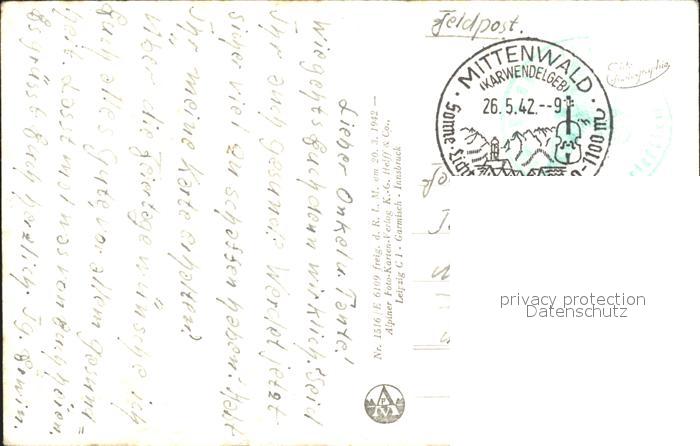 Feldpost.
MITTENWALD
(KARWENDELGEB)
26.5.42.--9
Sonne · Licht
-1100 m
Echte Photographie
Lieber Onkel u. Tante!
Wie geht's Euch denn wirklich? Seid
Ihr auch gesund. Werdet jetzt
sicher viel zu schaffen haben. Habt
Ihr meine Karte erhalten?
Über die Feiertage wünsche ich
Euch alles Gute vor allem Gesund=
heit. Lasst mal was von Euch hören.
Es grüsst Euch herzlich. Ig. Erwin.
Nr. 1516/E 6109 freig. d. R. L. M. am 20. 3. 1942 —
Alpiner Foto-Karten-Verlag K.-G. Helff & Co.,
Leipzig C 1 - Garmisch - Innsbruck
privacy protection
Datenschutz